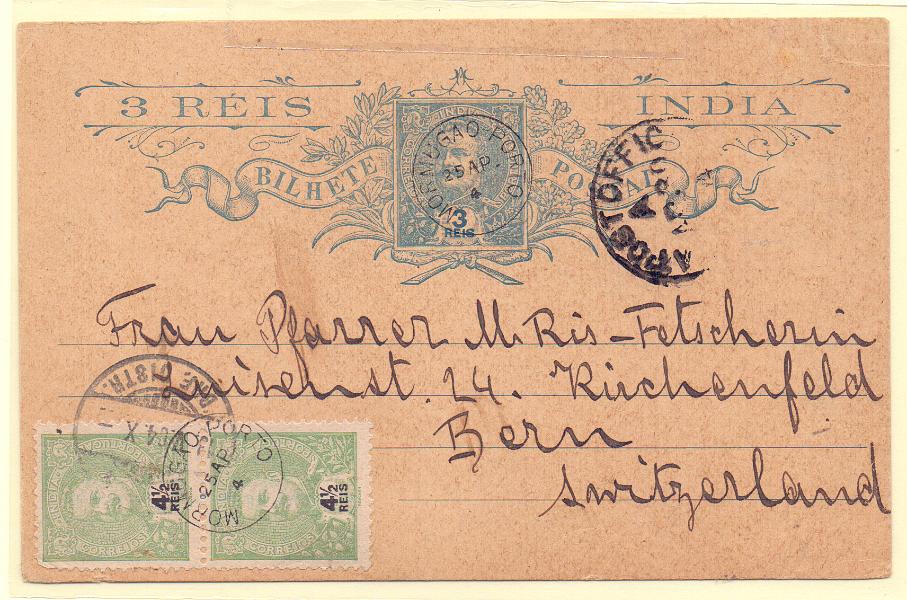 3 RÉIS
INDIA
BILHETE POSTAL
INDIA
3
REIS
MORMUGAO PORTO
25 AP.
4
POST OFFIC
Frau Pfarrer M. Ris-Fetscherin
Luisenst. 24. Kirchenfeld
Bern
Switzerland
DISTR.
X
MORMUGAO PORTO
25 AP
4
INDIA
4½
REIS
CORREIOS
INDIA
4½
REIS
CORREIOS